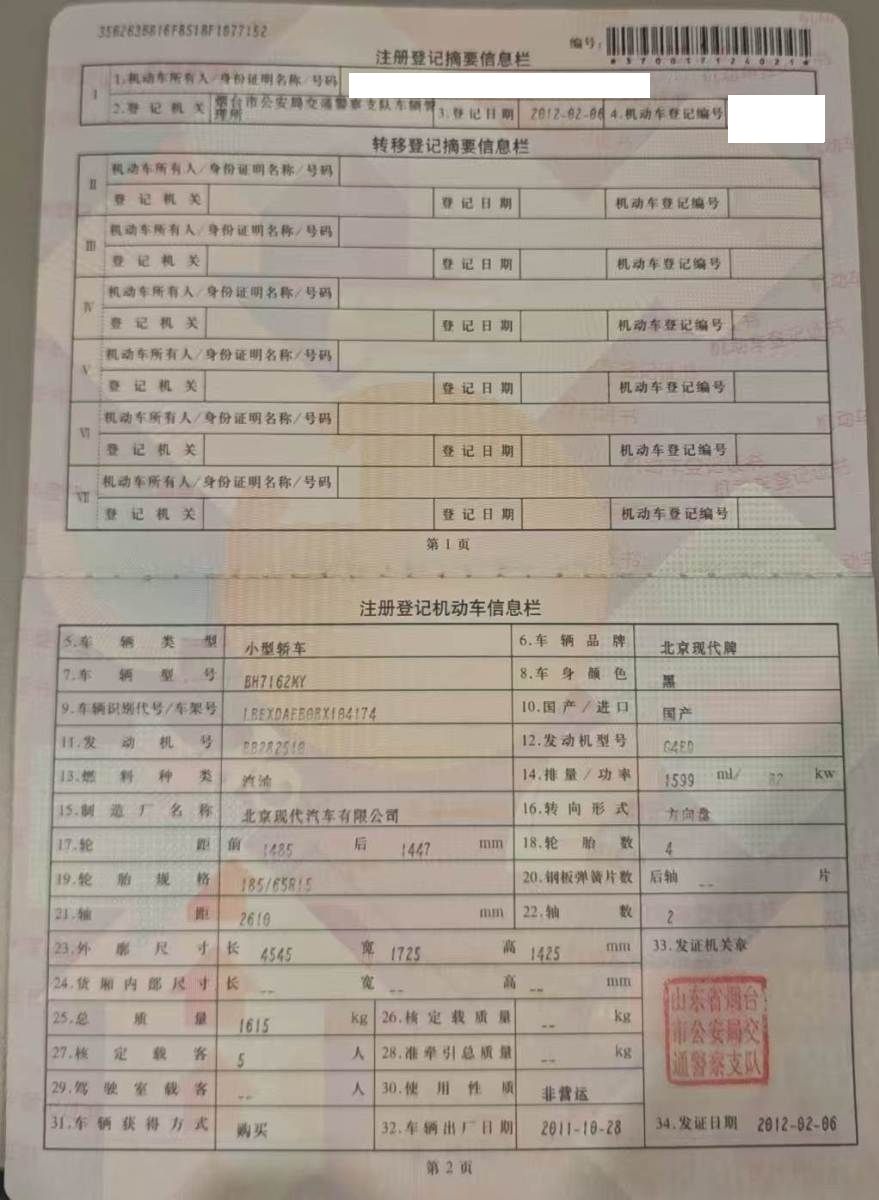 3562635816F8518F1077152
编号:
*370017124021*
注册登记摘要信息栏
I 1.机动车所有人/身份证明名称/号码
2.登记机关 烟台市公安局交通警察支队车辆管理所 3.登记日期 2012-02-06 4.机动车登记编号
转移登记摘要信息栏
II 机动车所有人/身份证明名称/号码
登记机关 登记日期 机动车登记编号
III 机动车所有人/身份证明名称/号码
登记机关 登记日期 机动车登记编号
IV 机动车所有人/身份证明名称/号码
登记机关 登记日期 机动车登记编号
V 机动车所有人/身份证明名称/号码
登记机关 登记日期 机动车登记编号
VI 机动车所有人/身份证明名称/号码
登记机关 登记日期 机动车登记编号
VII 机动车所有人/身份证明名称/号码
登记机关 登记日期 机动车登记编号
第1页
注册登记机动车信息栏
5.车辆类型 小型轿车 6.车辆品牌 北京现代牌
7.车辆型号 BH7162MY 8.车身颜色 黑
9.车辆识别代号/车架号 10.国产/进口 国产
11.发动机号 12.发动机型号 G4ED
13.燃料种类 汽油 14.排量/功率 1599 ml/ 82 kw
15.制造厂名称 北京现代汽车有限公司 16.转向形式 方向盘
17.轮距 前 1485 后 1447 mm 18.轮胎数 4
19.轮胎规格 185/65R15 20.钢板弹簧片数 后轴 -- 片
21.轴距 2610 mm 22.轴数 2
23.外廓尺寸 长 4545 宽 1725 高 1425 mm 33.发证机关章
24.货厢内部尺寸 长 -- 宽 -- 高 -- mm
山东省烟台
市公安局交
通警察支队
25.总质量 1615 kg 26.核定载质量 -- kg
27.核定载客 5 人 28.准牵引总质量 -- kg
29.驾驶室载客 -- 人 30.使用性质 非营运
31.车辆获得方式 购买 32.车辆出厂日期 2011-10-28 34.发证日期 2012-02-06
第2页